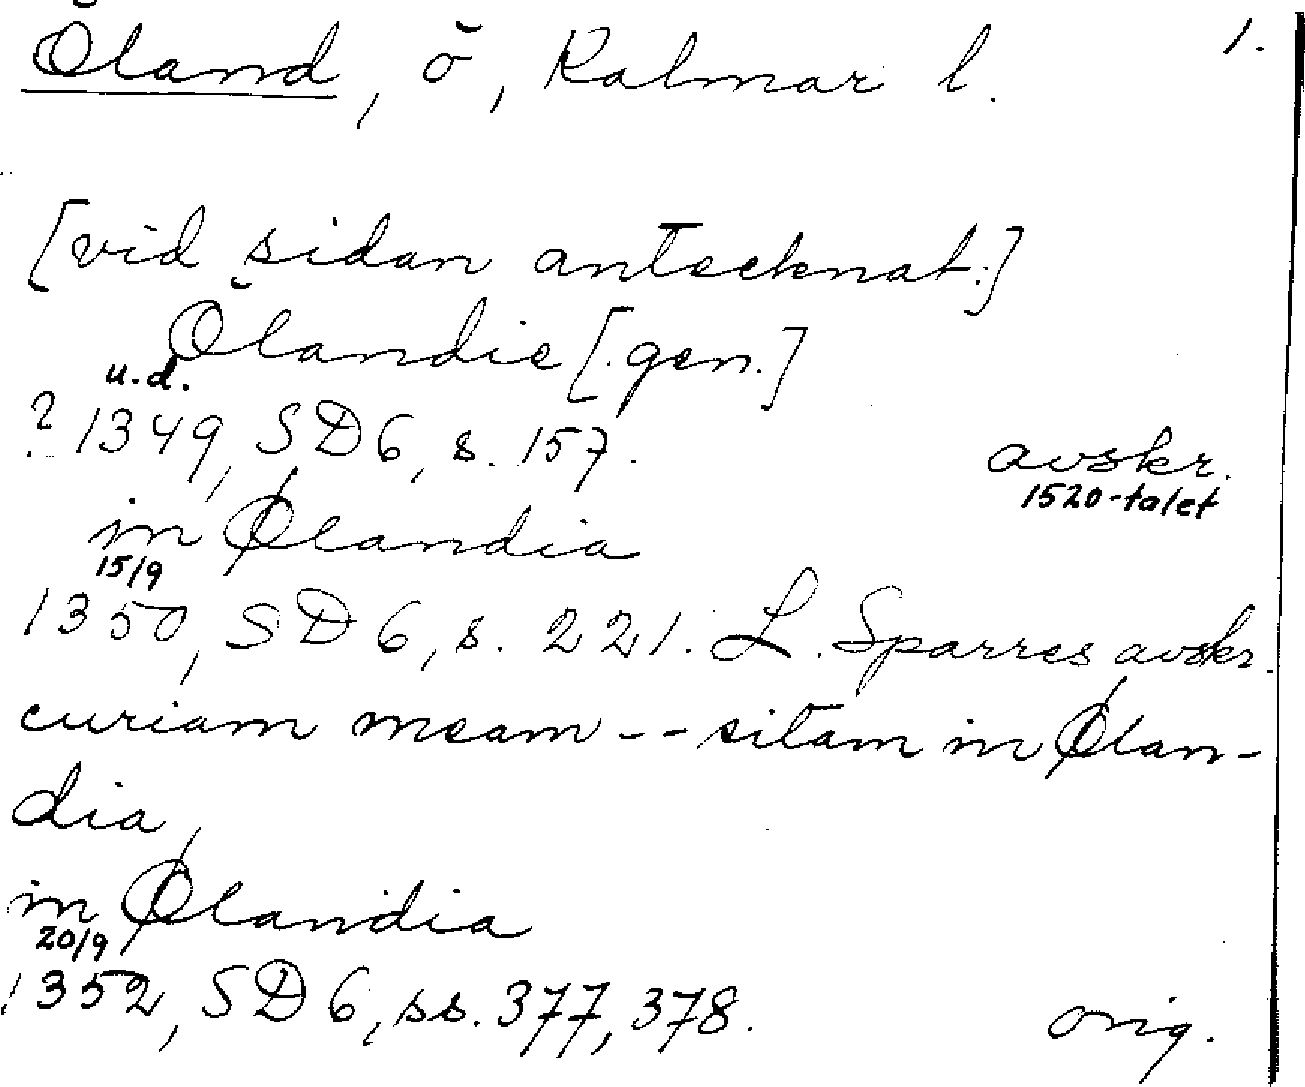 Öland, ö, Kalmar l. 1.
[vid sidan antecknat:]
Ölandie [gen.]
u.d.
? 1349, SD 6, s. 157. avskr.
1520-talet
in Ølandia
15/9
1350, SD 6, s. 221. L. Sparres avskr.
curiam meam -- sitam in Ølan-
dia,
in Ølandia
20/9
1352, SD 6, ss. 377, 378. orig.